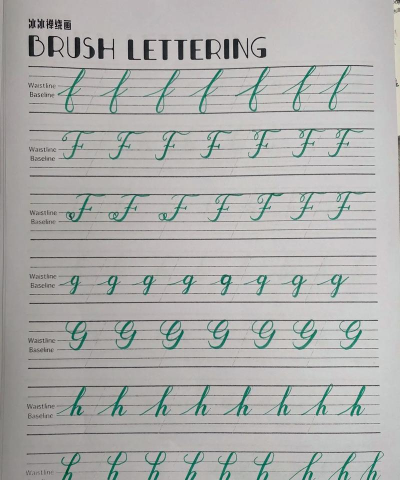 冰冰禅绕画
BRUSH LETTERING
Waistline
Baseline
f f f f f f f
Waistline
Baseline
F F F F F F F
Waistline
Baseline
F F F F F F F
Waistline
Baseline
g g g g g g g g
Waistline
Baseline
G G G G G G G
Waistline
Baseline
h h h h h h h h
Waistline
h h h h h h h h